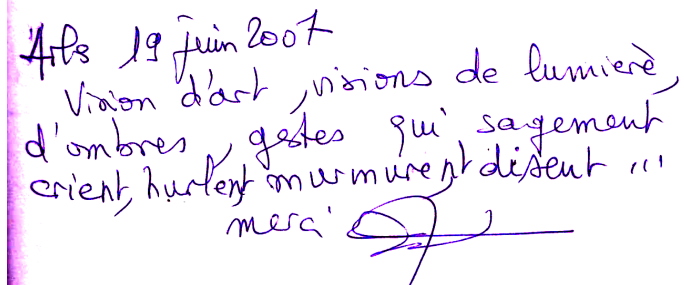 Arles 19 juin 2007
Vision d'art, visions de lumière,
d'ombres, gestes qui sagement
crient, hurlent murmurent disent ...
merci